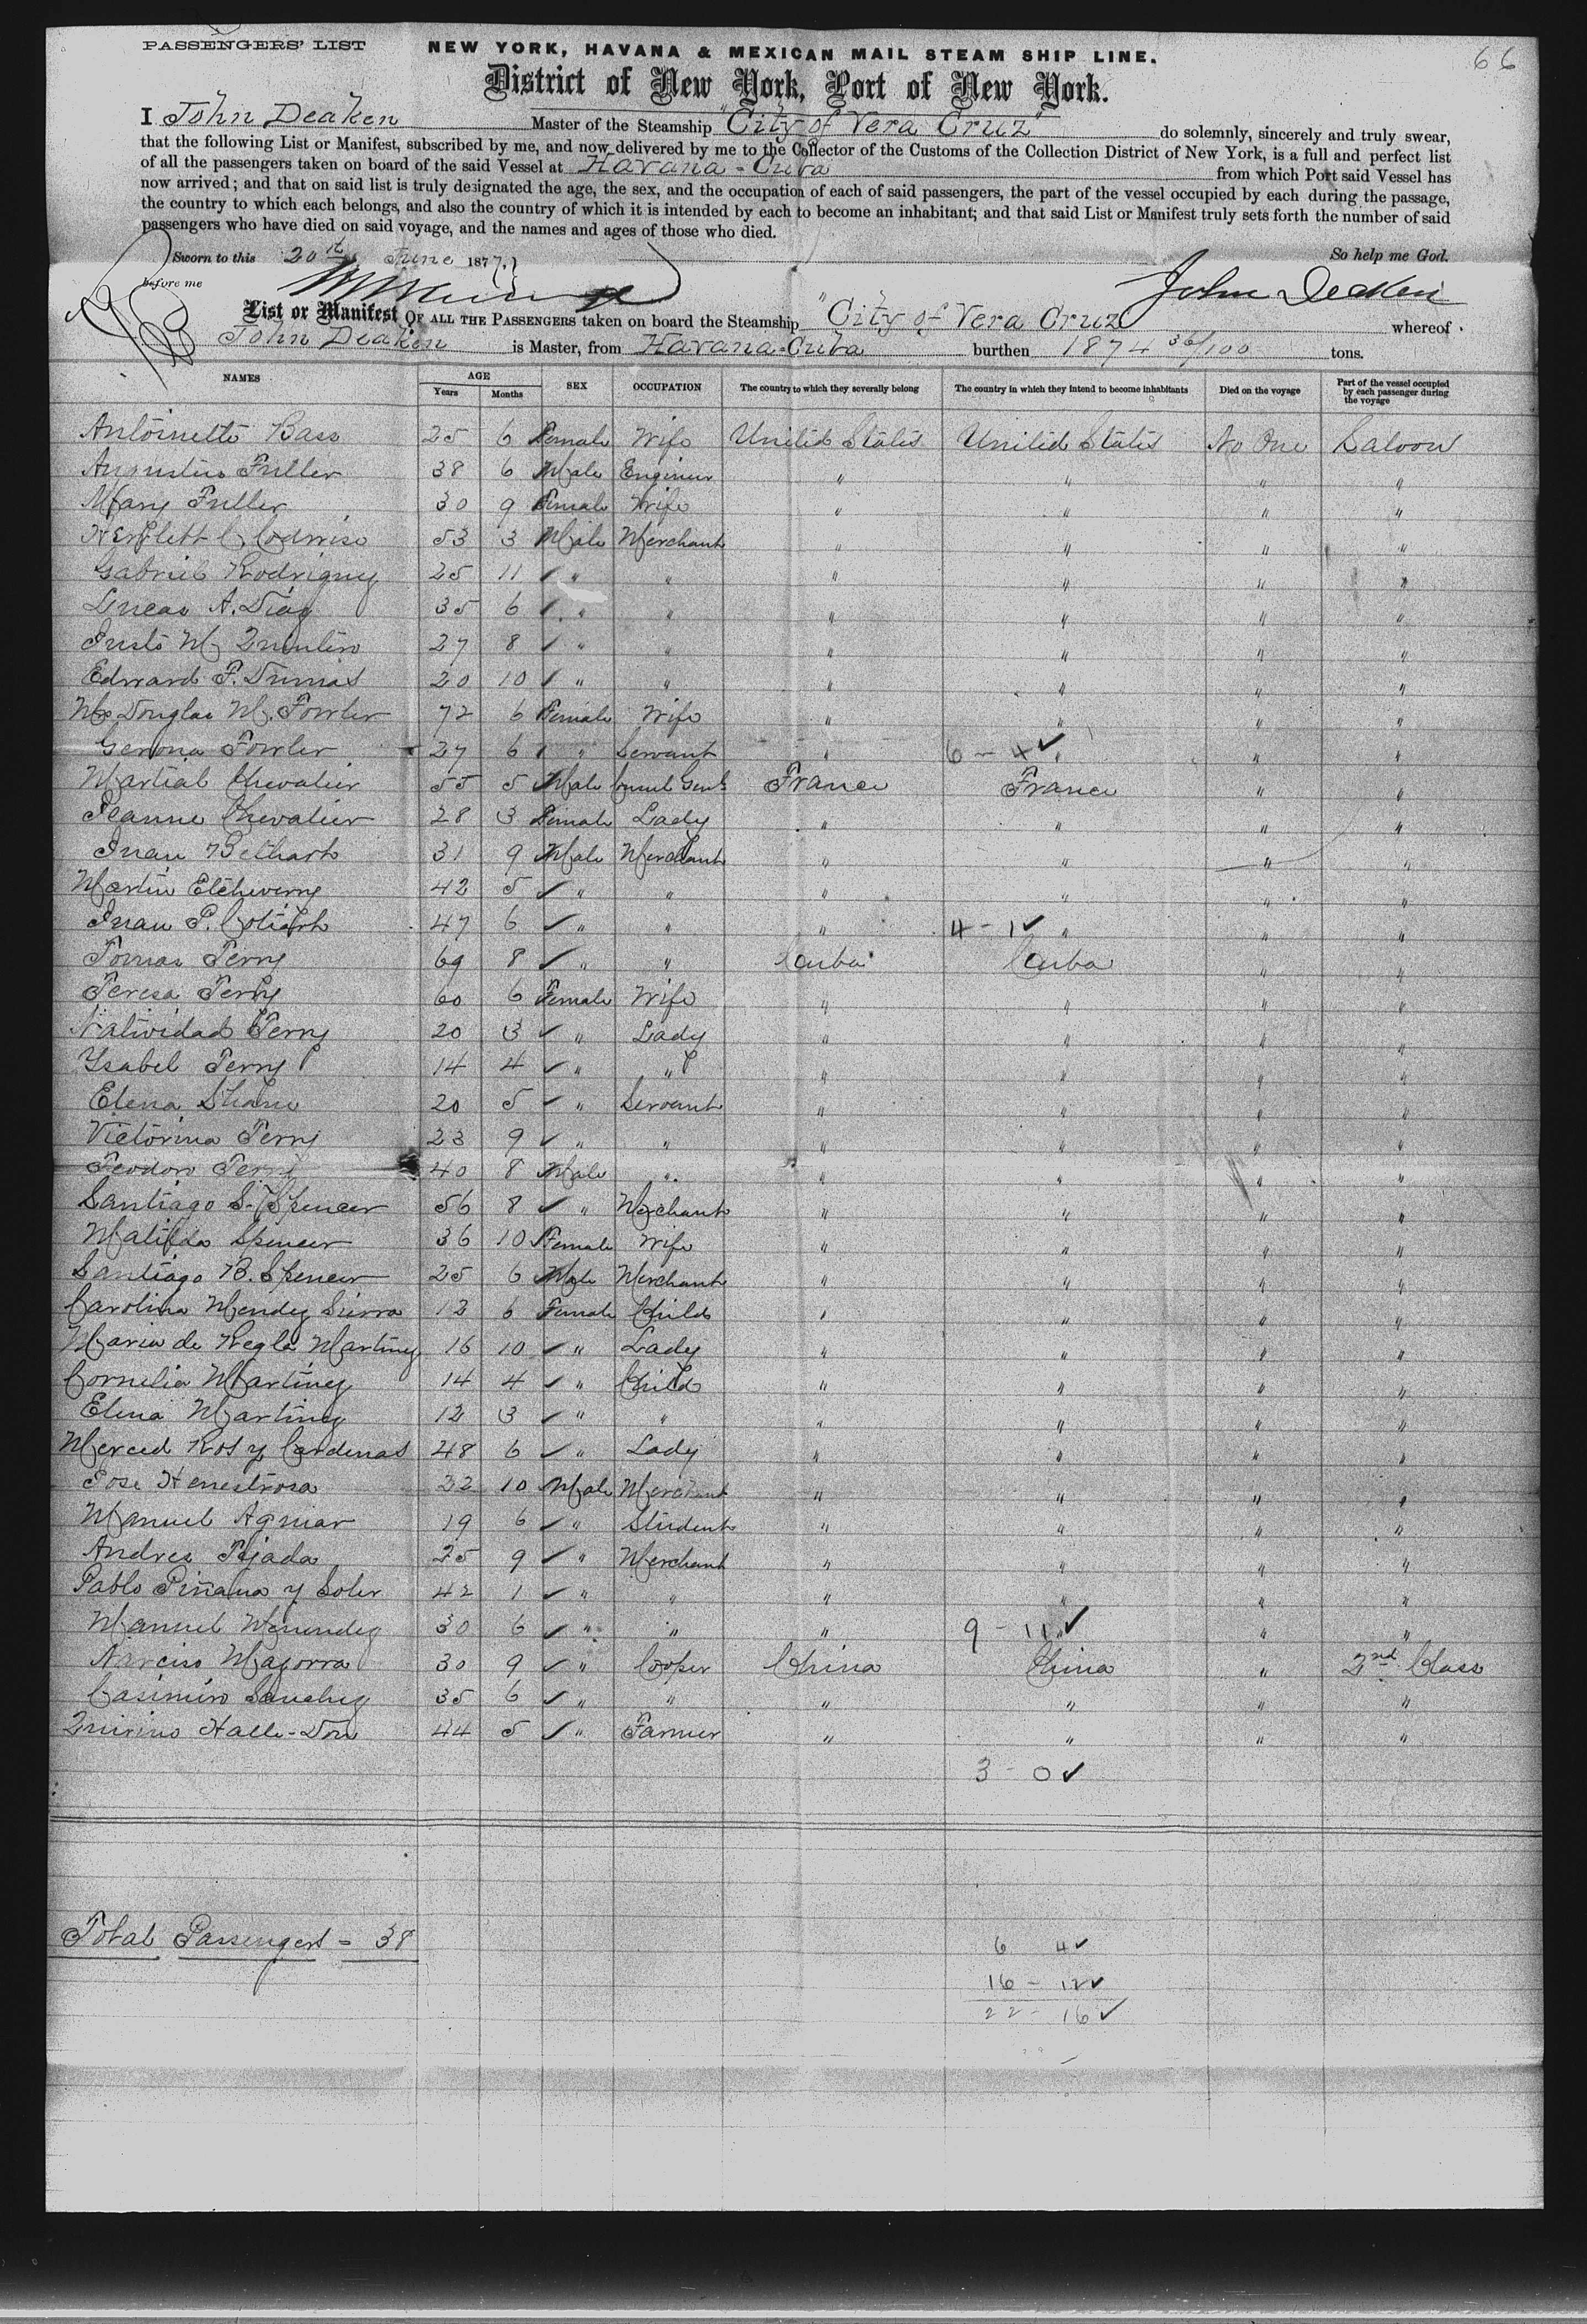 66
PASSENGERS' LIST NEW YORK, HAVANA & MEXICAN MAIL STEAM SHIP LINE.
District of New York, Port of New York.
I John Deaken Master of the Steamship "City of Vera Cruz" do solemnly, sincerely and truly swear,
that the following List or Manifest, subscribed by me, and now delivered by me to the Collector of the Customs of the Collection District of New York, is a full and perfect list
of all the passengers taken on board of the said Vessel at Havana - Cuba from which Port said Vessel has
now arrived; and that on said list is truly designated the age, the sex, and the occupation of each of said passengers, the part of the vessel occupied by each during the passage,
the country to which each belongs, and also the country of which it is intended by each to become an inhabitant; and that said List or Manifest truly sets forth the number of said
passengers who have died on said voyage, and the names and ages of those who died.
Sworn to this 20th June 1877. So help me God.
before me John Deaken
List or Manifest OF ALL THE PASSENGERS taken on board the Steamship "City of Vera Cruz whereof
John Deaken is Master, from Havana-Cuba burthen 1874 36/100 tons.
NAMES AGE Years Months SEX OCCUPATION The country to which they severally belong The country in which they intend to become inhabitants Died on the voyage Part of the vessel occupied by each passenger during the voyage
Antoinette Bass 25 6 Female Wife United States United States No One Saloon
Augustus Fuller 38 6 Male Engineer " " " "
Mary Fuller 30 9 Female Wife " " " "
53 3 Male Merchant " " " "
Gabriel Rodriguez 25 11 " " " " " "
Lucas A. Diaz 35 6 " " " " " "
Justo M. Quintin 27 8 " " " " " "
Edward F. Dumas 20 10 " " " " " "
Mrs Douglas M. Fowler 72 6 Female Wife " " " "
Gerona Fowler 27 6 " Servant " 6 - 4 ✓ " " "
Martial Chevalier 55 5 Male Consul Genl France France " "
Jeanne Chevalier 28 3 Female Lady " " " "
Juan Bethart 31 9 Male Merchant " " " "
Martin Etcheverry 42 5 ✓ " " " " " "
Juan P. 47 6 ✓ " " " 4 - 1 ✓ " " "
Tomas Terry 69 8 ✓ " " Cuba Cuba " "
Teresa Terry 60 6 Female Wife " " " "
Natividad Terry 20 3 ✓ " Lady " " " "
Ysabel Terry 14 4 ✓ " " " " " "
Elena 20 5 ✓ " Servant " " " "
Victorina Terry 23 9 ✓ " " " " " "
Teodoro Terry 40 8 Male " " " " "
Santiago S. Spencer 56 8 ✓ " Merchant " " " "
Matilda Spencer 36 10 Female Wife " " " "
Santiago B. Spencer 25 6 Male Merchant " " " "
Carolina Mendez Sierra 12 6 Female Child " " " "
Maria de Regla Martinez 16 10 ✓ " Lady " " " "
Cornelia Martinez 14 4 ✓ " Child " " " "
Elena Martinez 12 3 ✓ " " " " " "
Merced Ros y Cardenas 48 6 ✓ " Lady " " " "
Jose Henestrosa 22 10 Male Merchant " " " "
Manuel Aguiar 19 6 ✓ " Student " " " "
Andres Tejada 25 9 ✓ " Merchant " " " "
Pablo Piñana y Soler 42 1 ✓ " " " " " "
Manuel Menendez 30 6 ✓ " " " 9 - 11 ✓ " "
Narciso Mazorra 30 9 ✓ " Cooper China China " 2nd Class
Casimiro Sanchez 35 6 ✓ " " " " " "
Quirino Halle-Don 44 5 ✓ " Farmer " " " "
3 - 0 ✓
Total Passengers - 38
6 4 ✓
16 - 12 ✓
22 - 16 ✓